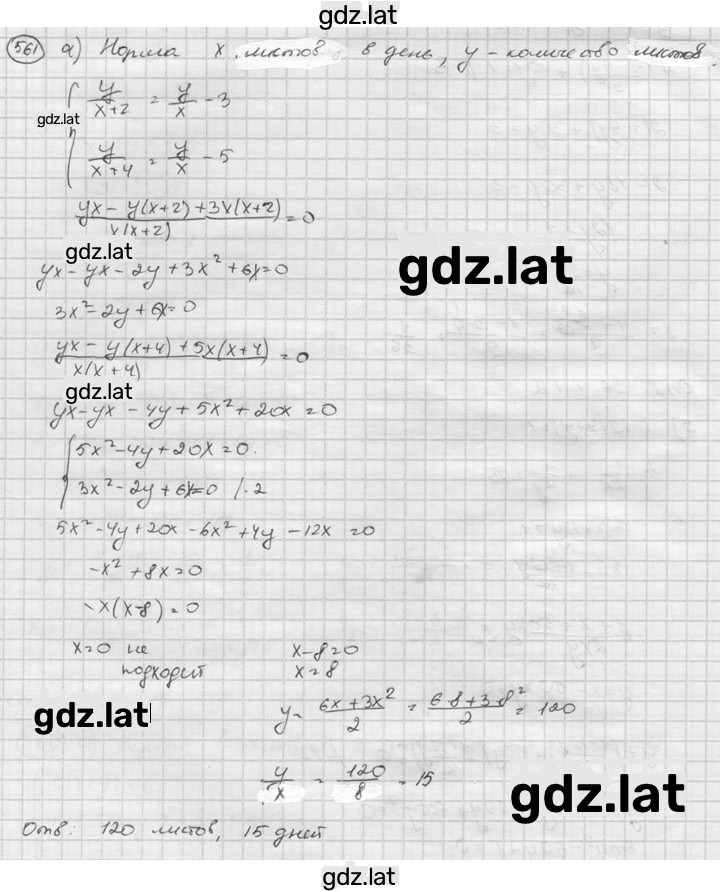 gdz.lat
561 а) Норма x листов в день, y – количество листов.
y/(x+2) = y/x - 3
gdz.lat
y/(x+4) = y/x - 5
(yx - y(x+2) + 3x(x+2))/(x(x+2)) = 0
gdz.lat
gdz.lat
yx - yx - 2y + 3x² + 6x = 0
3x² - 2y + 6x = 0
(yx - y(x+4) + 5x(x+4))/(x(x+4)) = 0
gdz.lat
yx - yx - 4y + 5x² + 20x = 0
5x² - 4y + 20x = 0.
3x² - 2y + 6x = 0 /·2
5x² - 4y + 20x - 6x² + 4y - 12x = 0
-x² + 8x = 0
-x(x-8) = 0
x = 0 не подходит
x - 8 = 0
x = 8
gdz.lat
y = (6x + 3x²)/2 = (6·8 + 3·8²)/2 = 120
y/x = 120/8 = 15
gdz.lat
Отв: 120 листов, 15 дней
gdz.lat